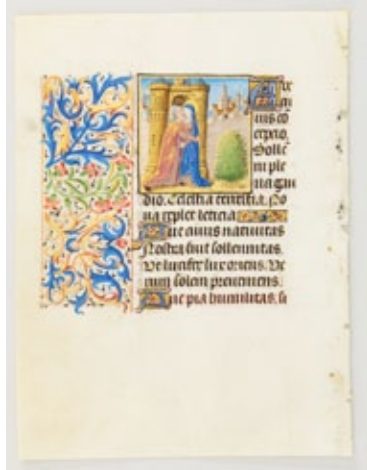 Aue
cu
ius cō
cepcio.
Solle
ni ple
na gau
dio. Celestia terrestria. No
ua replet leticia
Aue cuius natiuitas
Nostra fuit sollennitas.
Vt lucifer lux oriens. Ve
rum solem preueniens.
Aue pia humilitas. si